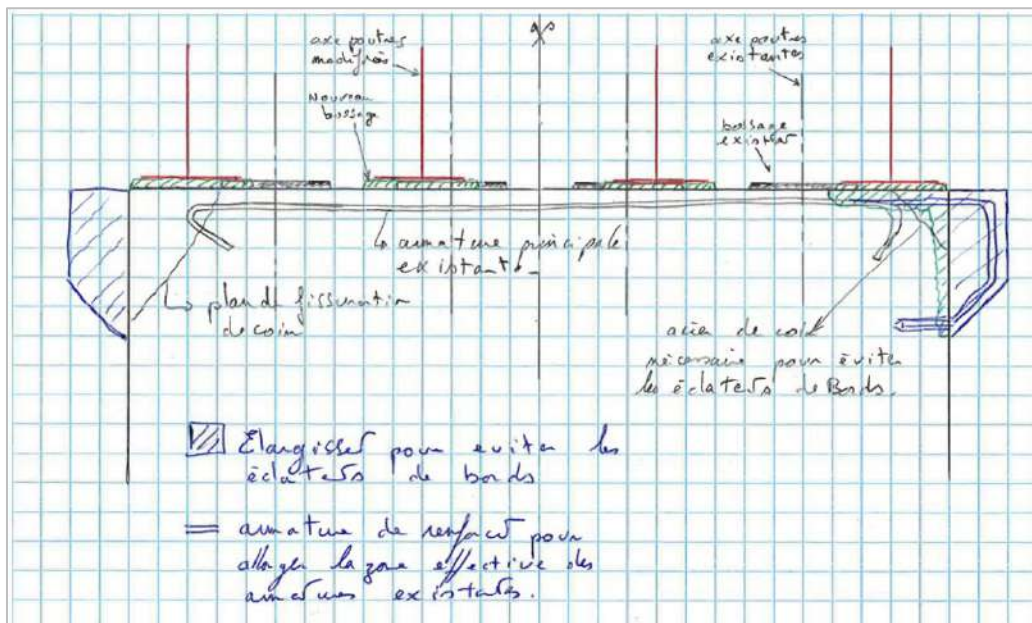 axe poutres
modifiés
axe poutres
existantes
Nouveau
bossage
bossage
existant
armature principale
existante
plan de fissuration
de coin
acier de coin
nécessaire pour éviter
les éclatets de Bords.
Elargisset pour eviter les
éclatets de bords
armature de renfort pour
allonger la zone effective des
armatures existantes.